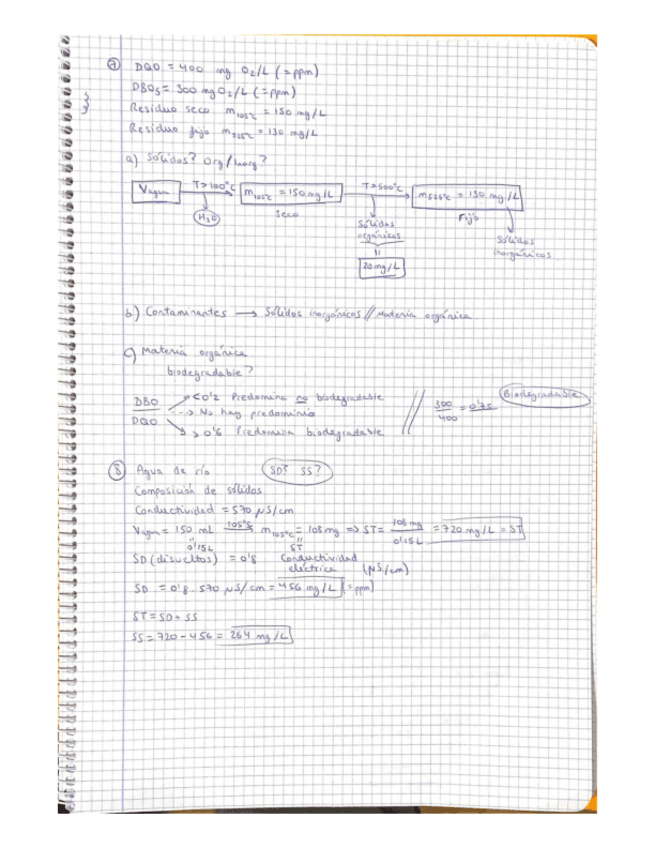 7 DQO = 400 mg O₂/L (= ppm)
DBO₅ = 300 mg O₂/L (= ppm)
Residuo seco m₁₀₅ºc = 150 mg/L
Residuo fijo m₅₂₅ºc = 130 mg/L
a) Sólidos? Org/Inorg?
Vagua T>100ºC m₁₀₅ºc = 150 mg/L T>500ºC m₅₂₅ºc = 130 mg/L
H₂O Seco Fijo
Sólidos orgánicos
Sólidos inorgánicos
=
20 mg/L
b) Contaminantes → Sólidos inorgánicos // Materia orgánica
c) Materia orgánica
biodegradable?
DBO/DQO
<0'2 Predomina no biodegradable
→ No hay predominio
>0'6 Predomina biodegradable
// 300/400 = 0'75 Biodegradable
8 Agua de río SD? SS?
Composición de sólidos
Conductividad = 570 µS/cm
Vagua = 150 mL 105ºC m₁₀₅ºc = 108 mg => ST = 108 mg/0'15 L = 720 mg/L = ST
0'15L ST
SD (disueltos) = 0'8 Conductividad eléctrica (µS/cm)
SD = 0'8 · 570 µS/cm = 456 mg/L (= ppm)
ST = SD + SS
SS = 720 - 456 = 264 mg/L